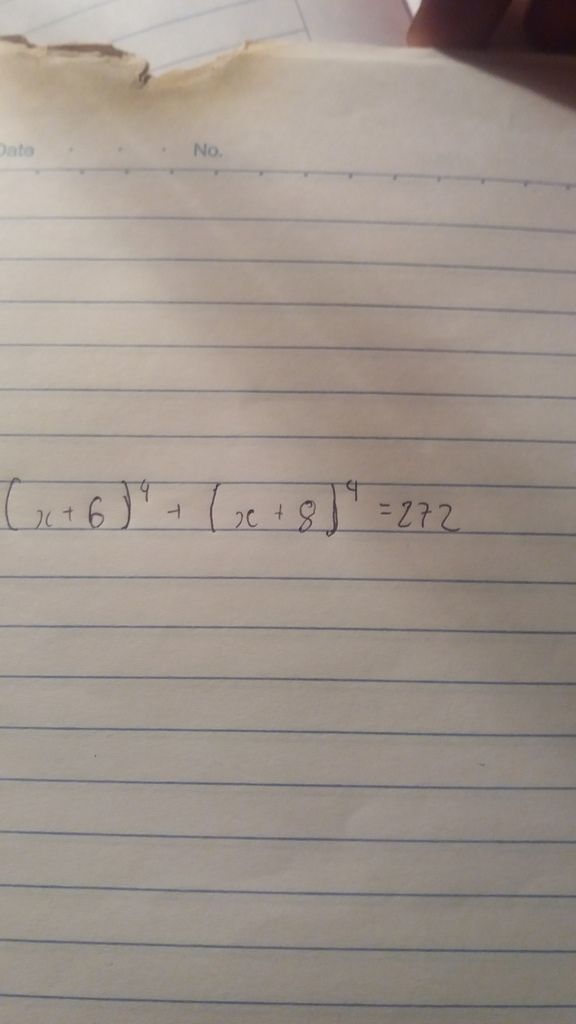 Date No.
(x+6)⁴ + (x+8)⁴ =272